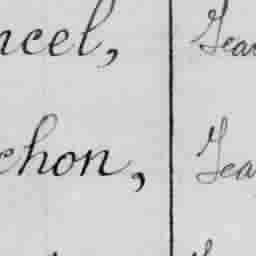 ncel, Jea
chon, Jea